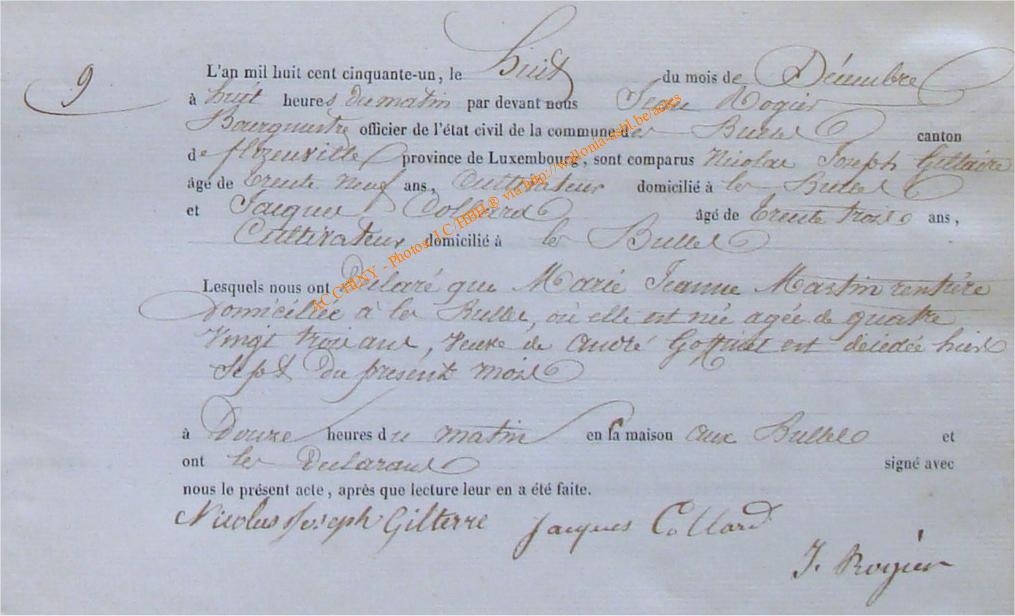 9
L'an mil huit cent cinquante-un, le huit du mois de Décembre
à huit heures du matin par devant nous Jean Rogier
Bourgmestre officier de l'état civil de la commune des Bulles canton
de florenville, province de Luxembourg, sont comparus Nicolas Joseph Giltaire
âgé de trente neuf ans, Cultivateur domicilié à les Bulles
et Jacques Collard âgé de trente trois ans,
Cultivateur domicilié à les Bulles
Lesquels nous ont déclaré que Marie Jeanne Martin rentière
domiciliée à les Bulles, où elle est née agée de quatre
vingt trois ans, veuve de andré est décedée hier
Sept du present mois
à Douze heures du matin en sa maison aux Bulles et
ont les declarans signé avec
nous le présent acte, après que lecture leur en a été faite.
Nicolas Joseph Gilterre Jacques Collard
J. Rogier
ACCHINY - Photos J.C/HBH® via http://wallonia-asbl.be/actes